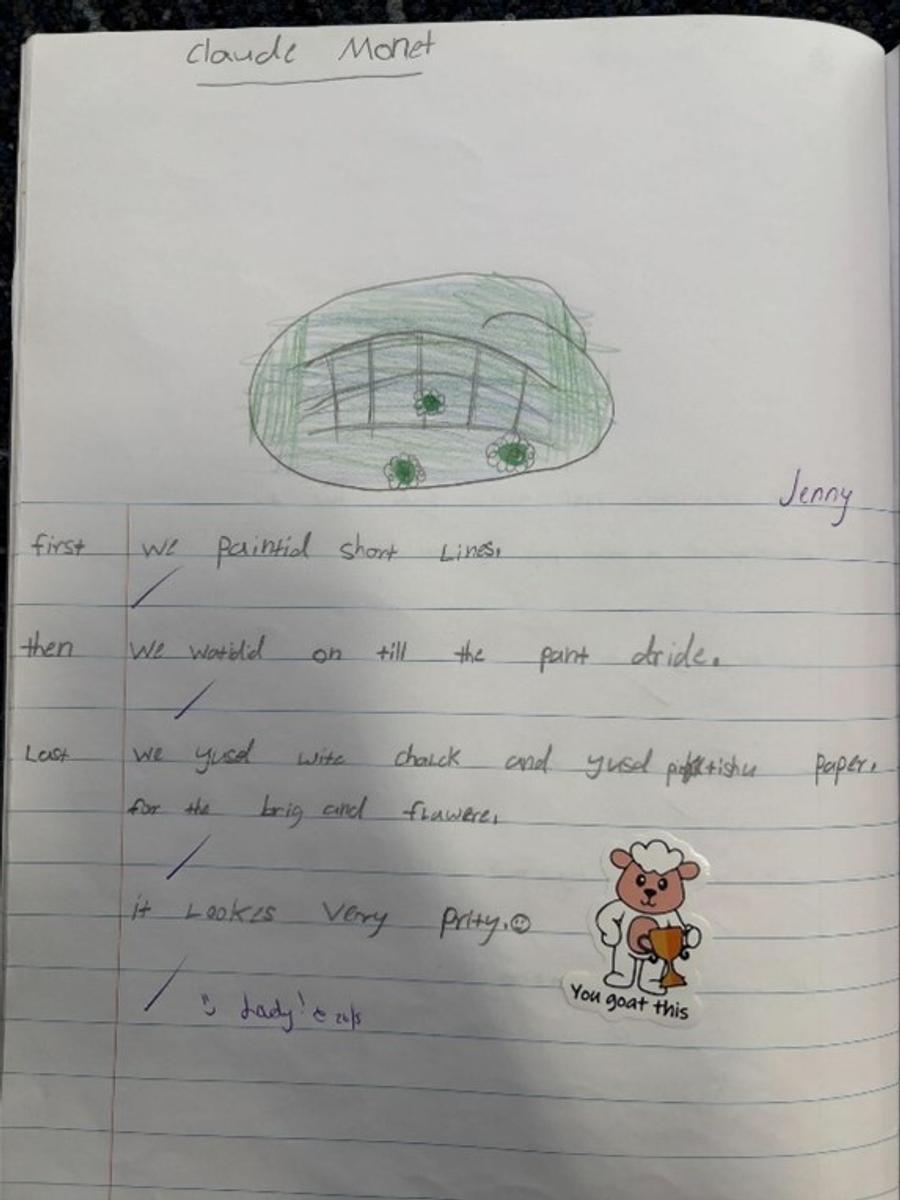 Claude Monet
Jenny
first we paintid short Lines.
then We watdid on till the pant dride.
Last we yusd wite chalck and yusd tishu paper.
for the brig and flawere.
it Lookes Very Prity.
You goat this